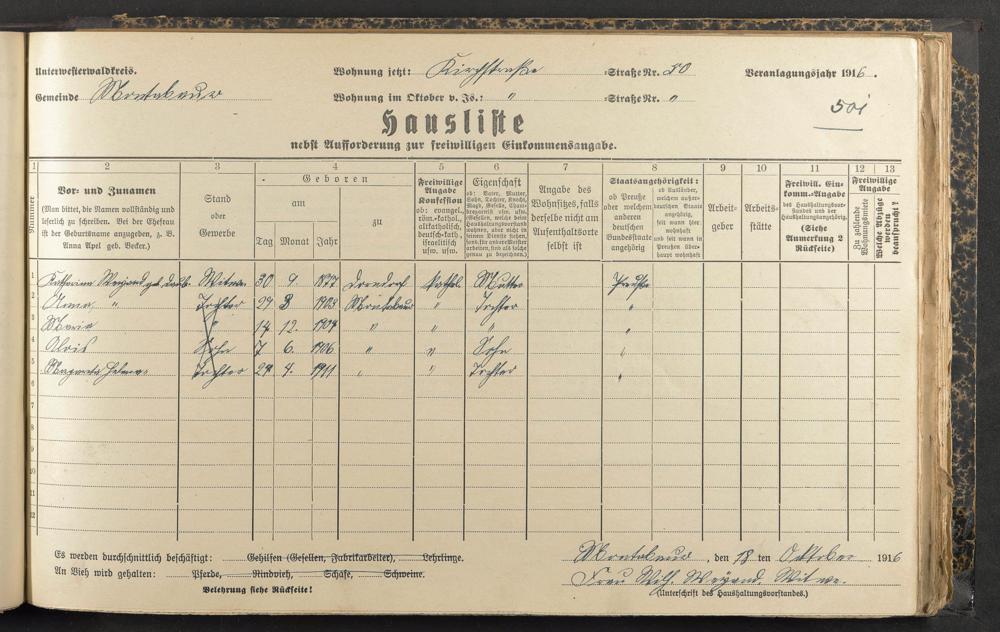 Unterwesterwaldkreis. Wohnung jetzt: Kirchstraße Straße Nr. 30 Veranlagungsjahr 1916.
Gemeinde Montabaur Wohnung im Oktober v. Js.: " Straße Nr. "
501
Hausliste
nebst Aufforderung zur freiwilligen Einkommensangabe.
1 2 3 4 5 6 7 8 9 10 11 12 13
Nummer
Vor- und Zunamen
(Man bittet, die Namen vollständig und
leserlich zu schreiben. Bei der Ehefrau
ist der Geburtsname anzugeben, z. B.
Anna Apel geb. Becker.)
Stand
oder
Gewerbe
Geboren
am
zu
Tag Monat Jahr
Freiwillige
Angabe
Konfession
ob: evangel.,
röm.-kathol.,
altkatholisch,
deutsch-kath.,
israelitisch
usw. usw.
Eigenschaft
ob: Vater, Mutter,
Sohn, Tochter, Knecht,
Magd, Geselle,
genau zu bezeichnen).
Angabe des
Wohnsitzes, falls
derselbe nicht am
Aufenthaltsorte
selbst ist
Staatsangehörigkeit:
ob Preuße
oder welchem
anderen
deutschen
Bundesstaate
angehörig
ob Ausländer,
welchem außer-
deutschen Staate
angehörig,
seit wann hier
wohnhaft
und seit wann in
Preußen über-
haupt wohnhaft
Arbeit-
geber
Arbeits-
stätte
Freiwill. Ein-
komm.-Angabe
des Haushaltungsvor-
standes und der
Haushaltungsangehörig.
(Siehe
Anmerkung 2
Rückseite)
Freiwillige
Angabe
Zu zahlende
Wohnungsmiete
Welche Abzüge
werden
beansprucht?
1 Katharina Weyand geb. Witwe 30 9. 1877 kathol. Mutter Preuße
2 Anna " Tochter 29 8 1903 Montabaur " Tochter "
3 Maria " 14 12. 1904 " " " "
4 Alois Sohn 7 6. 1906 " " Sohn "
5 Margareta Helena Tochter 24 4. 1911 " " Tochter "
6
7
8
9
10
11
12
Es werden durchschnittlich beschäftigt: Gehilfen (Gesellen, Fabrikarbeiter), Lehrlinge.
An Vieh wird gehalten: Pferde, Rindvieh, Schafe, Schweine.
Belehrung siehe Rückseite!
Montabaur, den 18 ten Oktober 1916
Frau Wilh. Weyand. Witwe.
(Unterschrift des Haushaltungsvorstandes.)